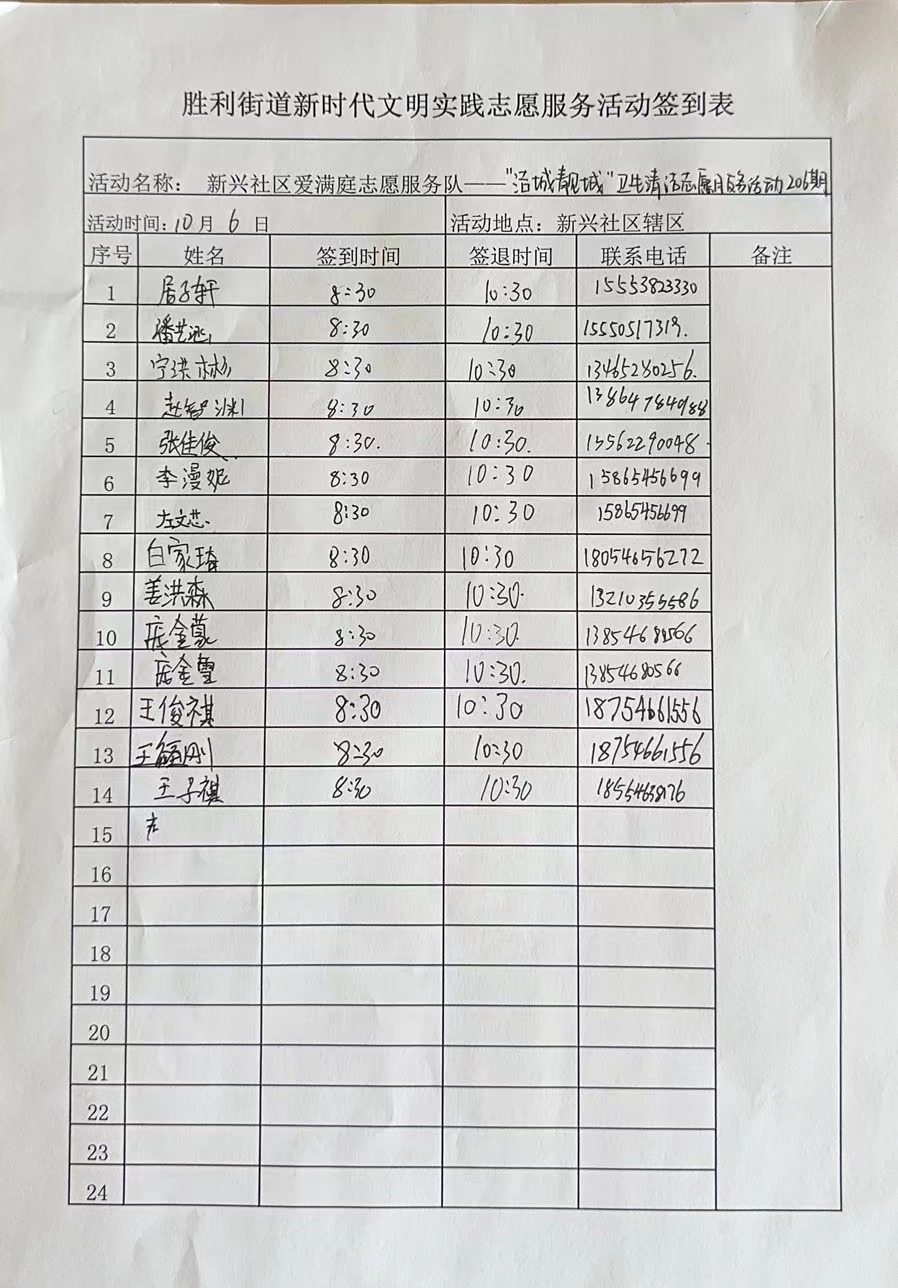 胜利街道新时代文明实践志愿服务活动签到表
活动名称： 新兴社区爱满庭志愿服务队——"洁城靓城"卫生清洁志愿服务活动206期
活动时间：10月 6 日 活动地点：新兴社区辖区
序号 姓名 签到时间 签退时间 联系电话 备注
1 居子轩 8:30 10:30 15553823330
2 潘艺 8:30 10:30 15550517319.
3 宁洪彬 8:30 10:30 13465280256.
4 赵智渊 8:30 10:30 13864784088
5 张佳俊 8:30. 10:30. 13562290048.
6 李漫妮 8:30 10:30 15865456699
7 左文芯 8:30 10:30 15865456699
8 白家琦 8:30 10:30 18054656272
9 姜洪森 8:30 10:30. 13210355586
10 金蒙 8:30 10:30. 13854680566
11 金雪 8:30 10:30. 13854680566
12 王俊祺 8:30 10:30 18754661556
13 王刚 8:30 10:30 18754661556
14 王子祺 8:30 10:30
15
16
17
18
19
20
21
22
23
24